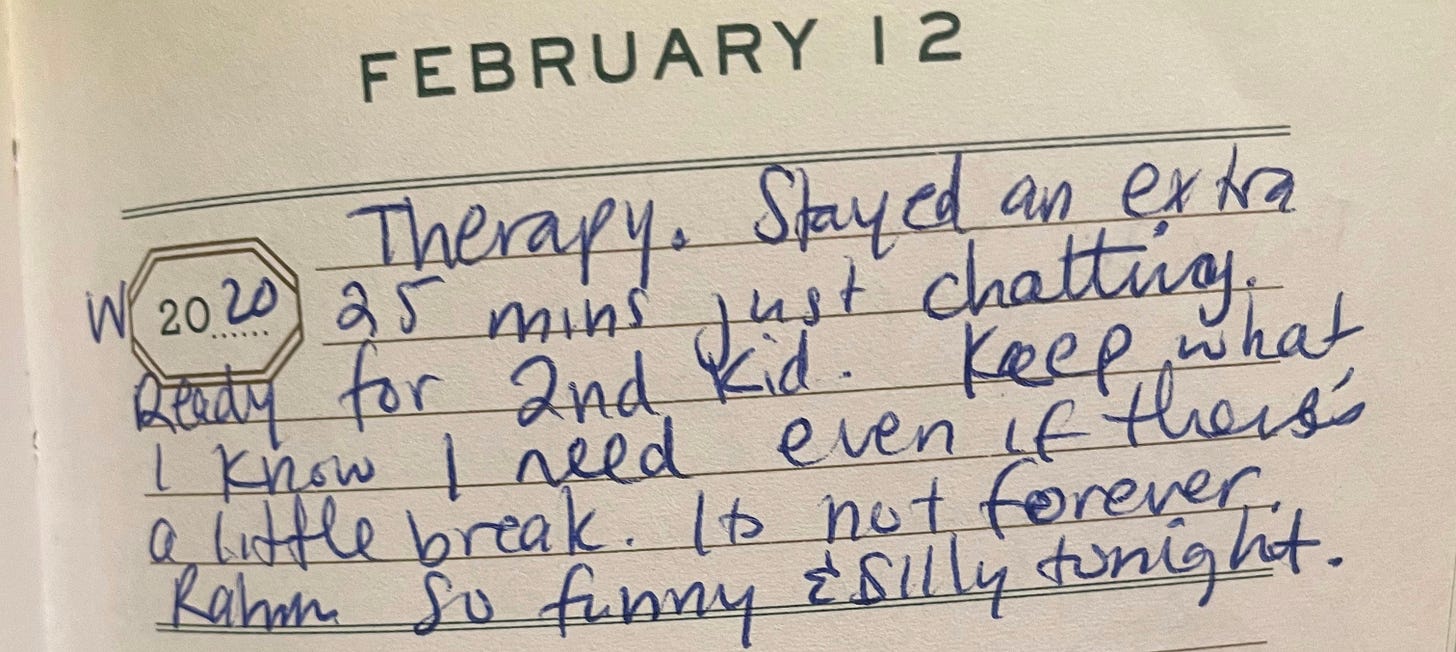 FEBRUARY 12
Therapy. Stayed an extra
W 2020 25 mins just chatting.
Ready for 2nd kid. Keep what
I know I need even if there's
a little break. Its not forever.
Rahm so funny & silly tonight.